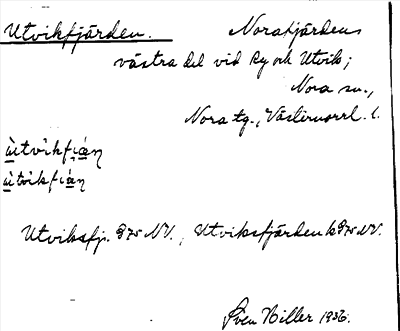 Utvikfjärden. Norafjärdens
västra del vid Ry och Utvik;
Nora sn.,
Nora tg., Västernorrl. l.
Utviksfj. 975 NV., Utviksfjärden k 975 NV.
Sven Hiller 1936.